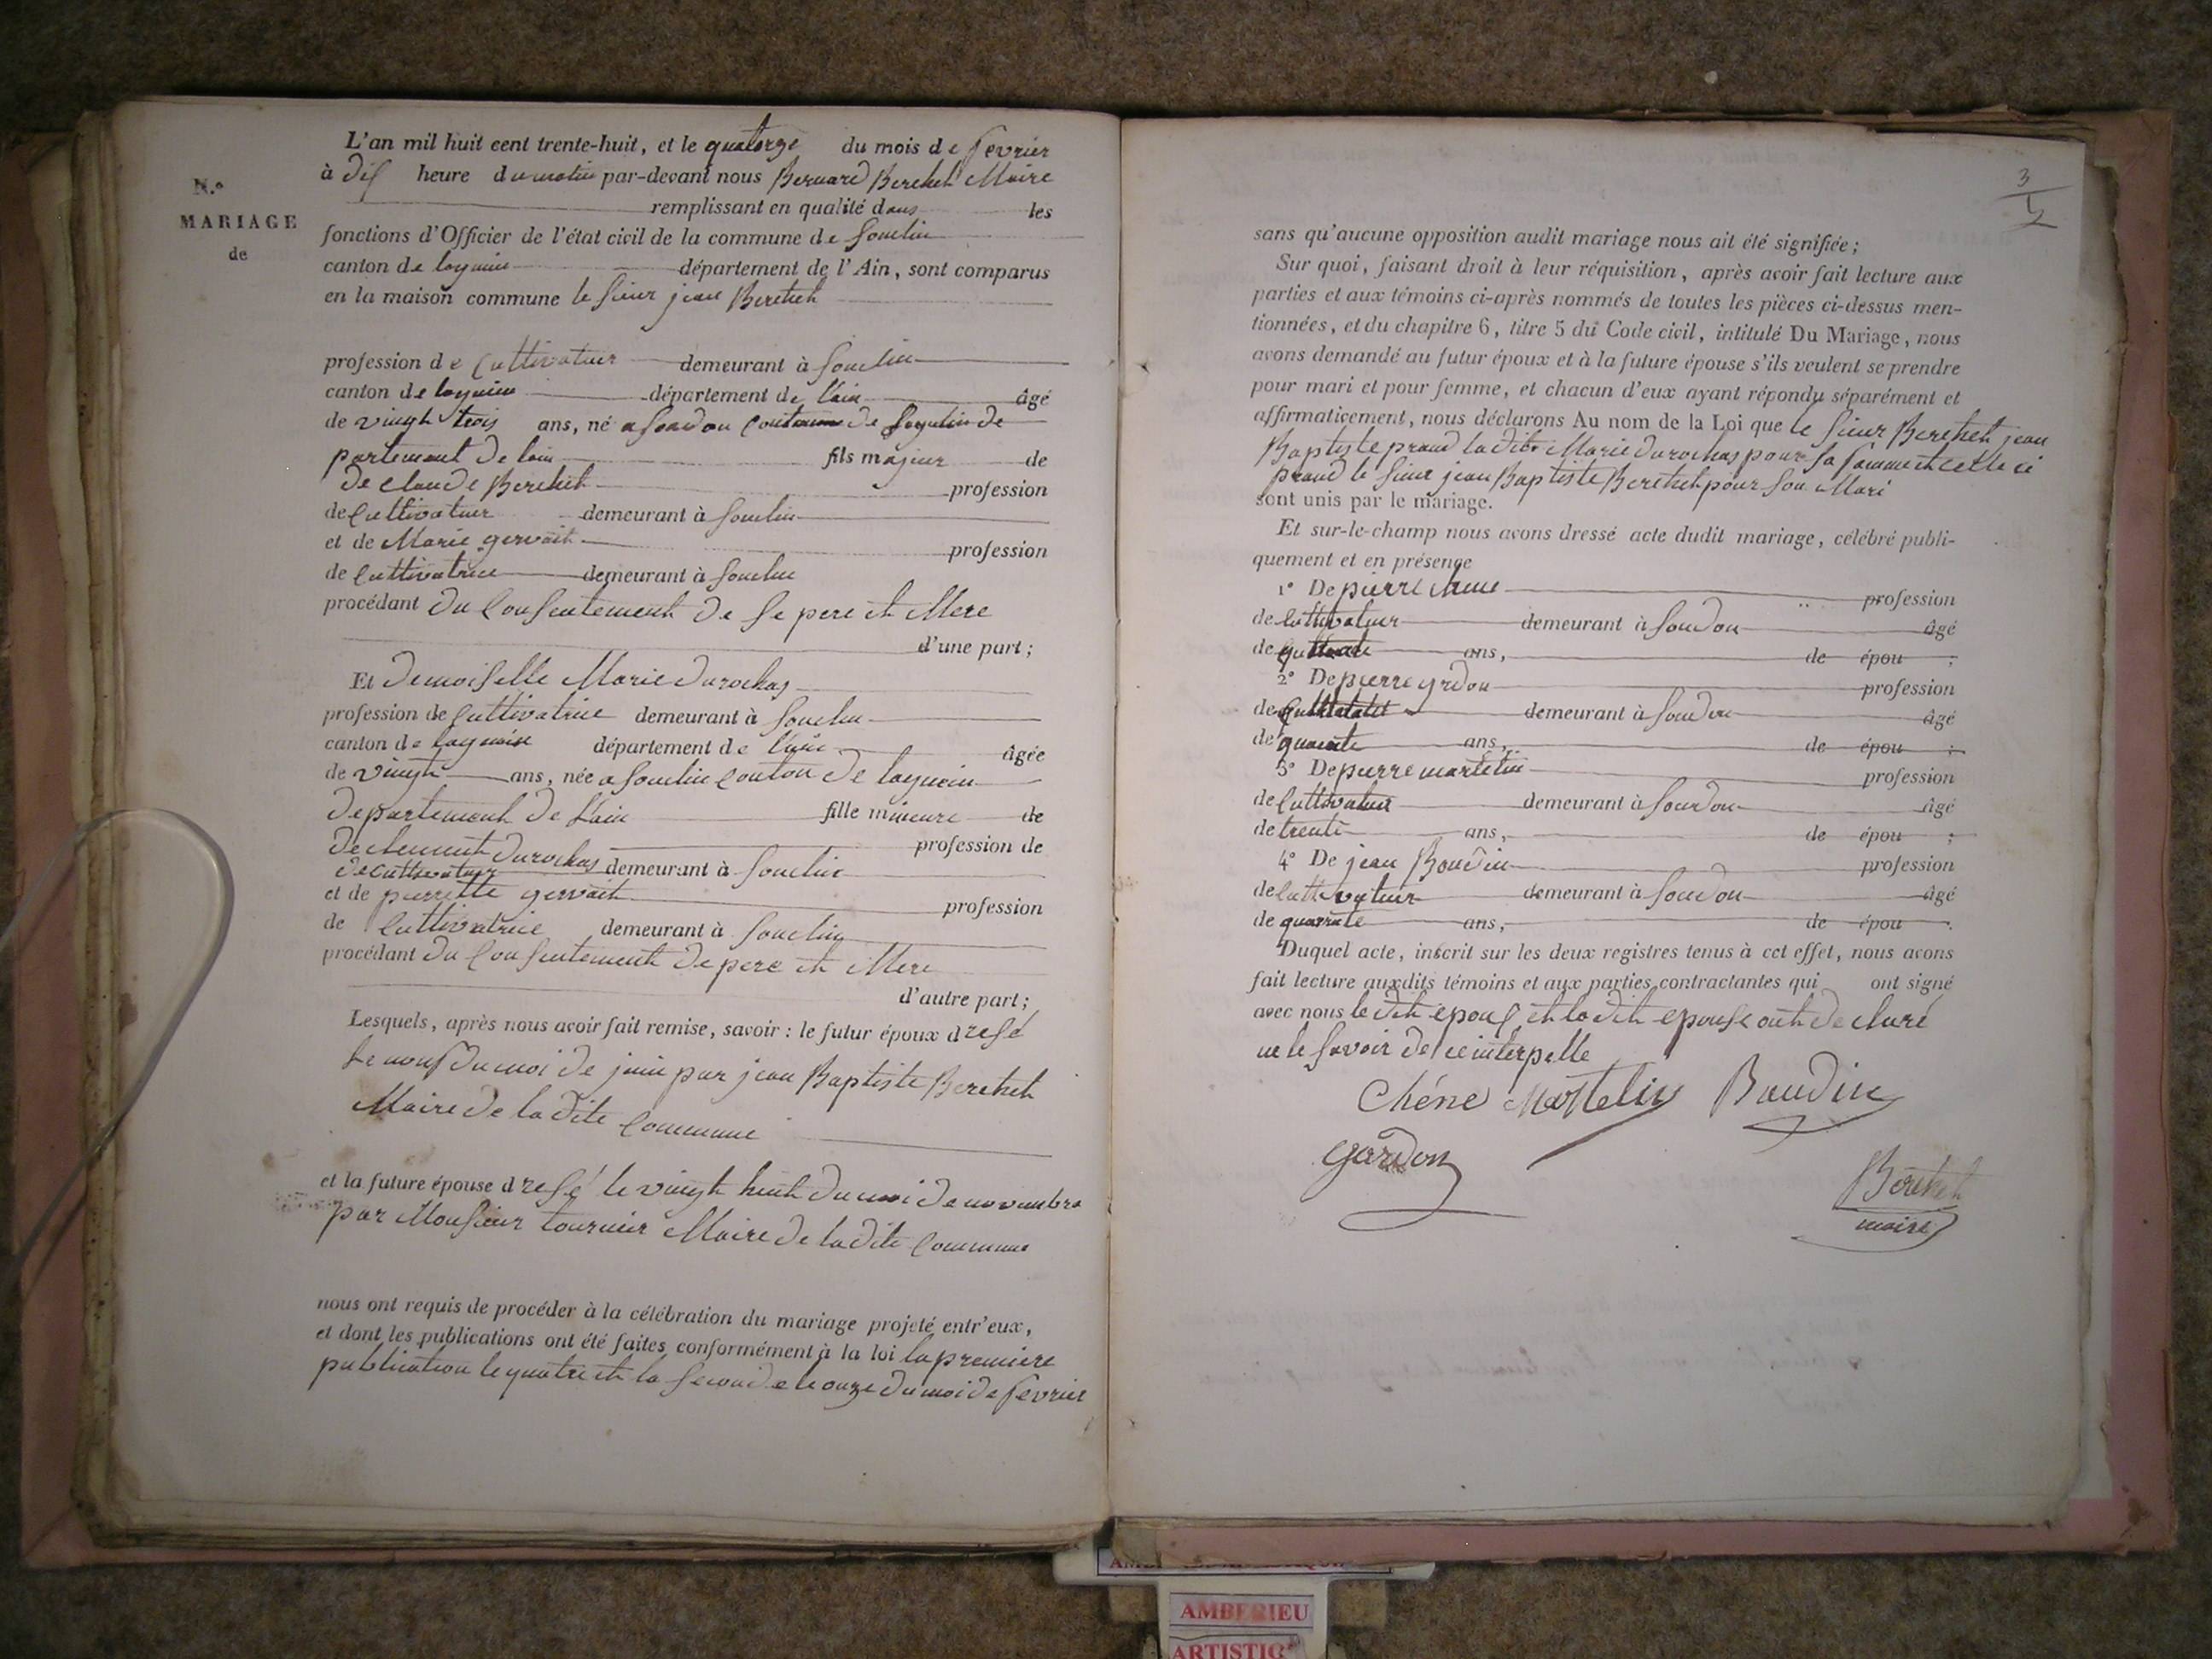 N.º
MARIAGE
de
L'an mil huit cent trente-huit, et le quatorze du mois de fevrier
à dix heure du matin par-devant nous Bernard Berthet Maire
remplissant en qualité dans les
fonctions d'Officier de l'état civil de la commune de Souclin
canton de lagnieu département de l'Ain, sont comparus
en la maison commune le sieur jean Berthet
profession de Cultivateur demeurant à Souclin
canton de lagnieu département de l'ain âgé
de vingh trois ans, né a Soudon de
partement de lain fils majeur de
de claude Berthet profession
de Cultivateur demeurant à Souclin
et de Marie gervait profession
de Cultivatrice demeurant à Souclin
procédant du Consentement de se pere et Mere
d'une part ;
Et demoiselle Marie durochas
profession de Cultivatrice demeurant à Souclin
canton de lagnieu département de l'ain âgée
de vingh ans, née a Souclin Canton de lagnieu
departement de l'ain fille mineure de
de clement durochas profession de
de cultivateur demeurant à Souclin
et de pierrette gervait profession
de Cultivatrice demeurant à Souclin
procédant du Consentement de pere et Mere
d'autre part ;
Lesquels, après nous avoir fait remise, savoir : le futur époux dresé
Le du moi de juin par jean Baptiste Berthet
Maire de la dite Commune
et la future épouse dresé le vingh huit du moi de novembre
par Monsieur tournier Maire de la dite Commune
nous ont requis de procéder à la célébration du mariage projeté entr'eux,
et dont les publications ont été faites conformément à la loi la premiere
publication le quatre et la seconde le onze du moi de fevrier
3
sans qu'aucune opposition audit mariage nous ait été signifiée ;
Sur quoi, faisant droit à leur réquisition, après avoir fait lecture aux
parties et aux témoins ci-après nommés de toutes les pièces ci-dessus men-
tionnées, et du chapitre 6, titre 5 du Code civil, intitulé Du Mariage, nous
avons demandé au futur époux et à la future épouse s'ils veulent se prendre
pour mari et pour femme, et chacun d'eux ayant répondu séparément et
affirmativement, nous déclarons Au nom de la Loi que le sieur Berthet jean
Baptiste prand la dite Marie durochas pour sa famme et celle ci
prand le sieur jean Baptiste Berthet pour son Mari
sont unis par le mariage.
Et sur-le-champ nous avons dressé acte dudit mariage, célébré publi-
quement et en présence
1º De pierre chene profession
de Cultivateur demeurant à Soudon âgé
de ans, de épou ;
2º De pierre profession
de demeurant à Soudon âgé
de ans, de épou ;
3º De pierre martelin profession
de Cultivateur demeurant à Soudon âgé
de trente ans, de épou ;
4º De jean Boudin profession
de Cultivateur demeurant à Soudon âgé
de quarante ans, de épou .
Duquel acte, inscrit sur les deux registres tenus à cet effet, nous avons
fait lecture auxdits témoins et aux parties contractantes qui ont signé
avec nous le dit epoux et la dite epouse ont declaré
ne le savoir de ce interpelle
Chéne Martelin Baudin
gardon
Berthet
maire
AMBERIEU
ARTISTIQ